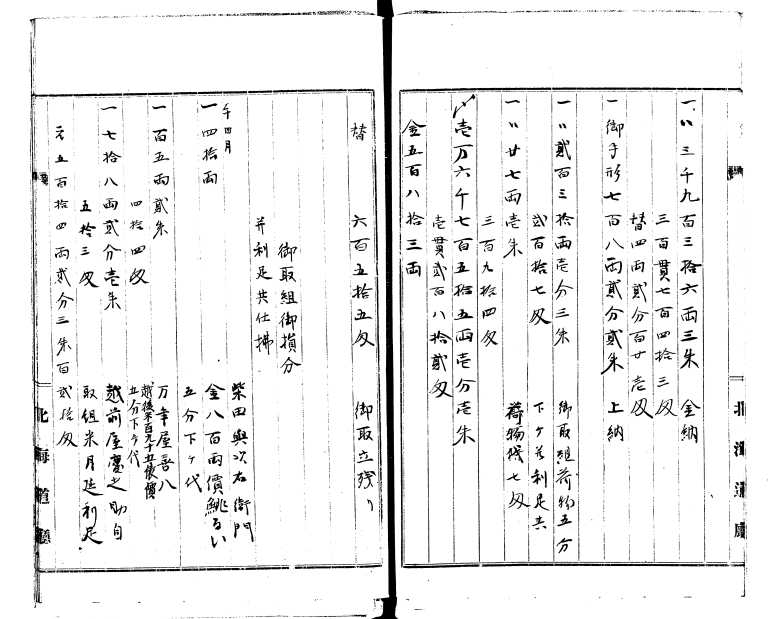 一〃三千九百三拾六両三朱 金納
三百貫七百四拾三匁
替四両貳分百廿壱匁
一御手形七百八両貳分貳朱 上納
一〃貳百三拾両壱分三朱 御取組荷物五分
貳百拾七匁 下ケ并利足共
一〃廿七両壱朱 荷物残七匁
三百九拾四匁
〆壱万六千七百五拾五両壱分壱朱
壱貫貳百八拾貳匁
金五百八拾三両
替 六百五拾五匁 御取立残り
御取組御損分
并利足共仕拂
午四月
一四拾両 柴田與次右衛門
金八百両價
五分下ケ代
一百五両貳朱 万年屋喜八
四拾四匁 越後米百九十五俵價
五分下ケ代
一七拾八両貳分壱朱 越前屋慶之助自
五拾三匁 取組米月延利足
〆五百拾四両貳分三朱百貳拾匁
北海道廳
北海道廳